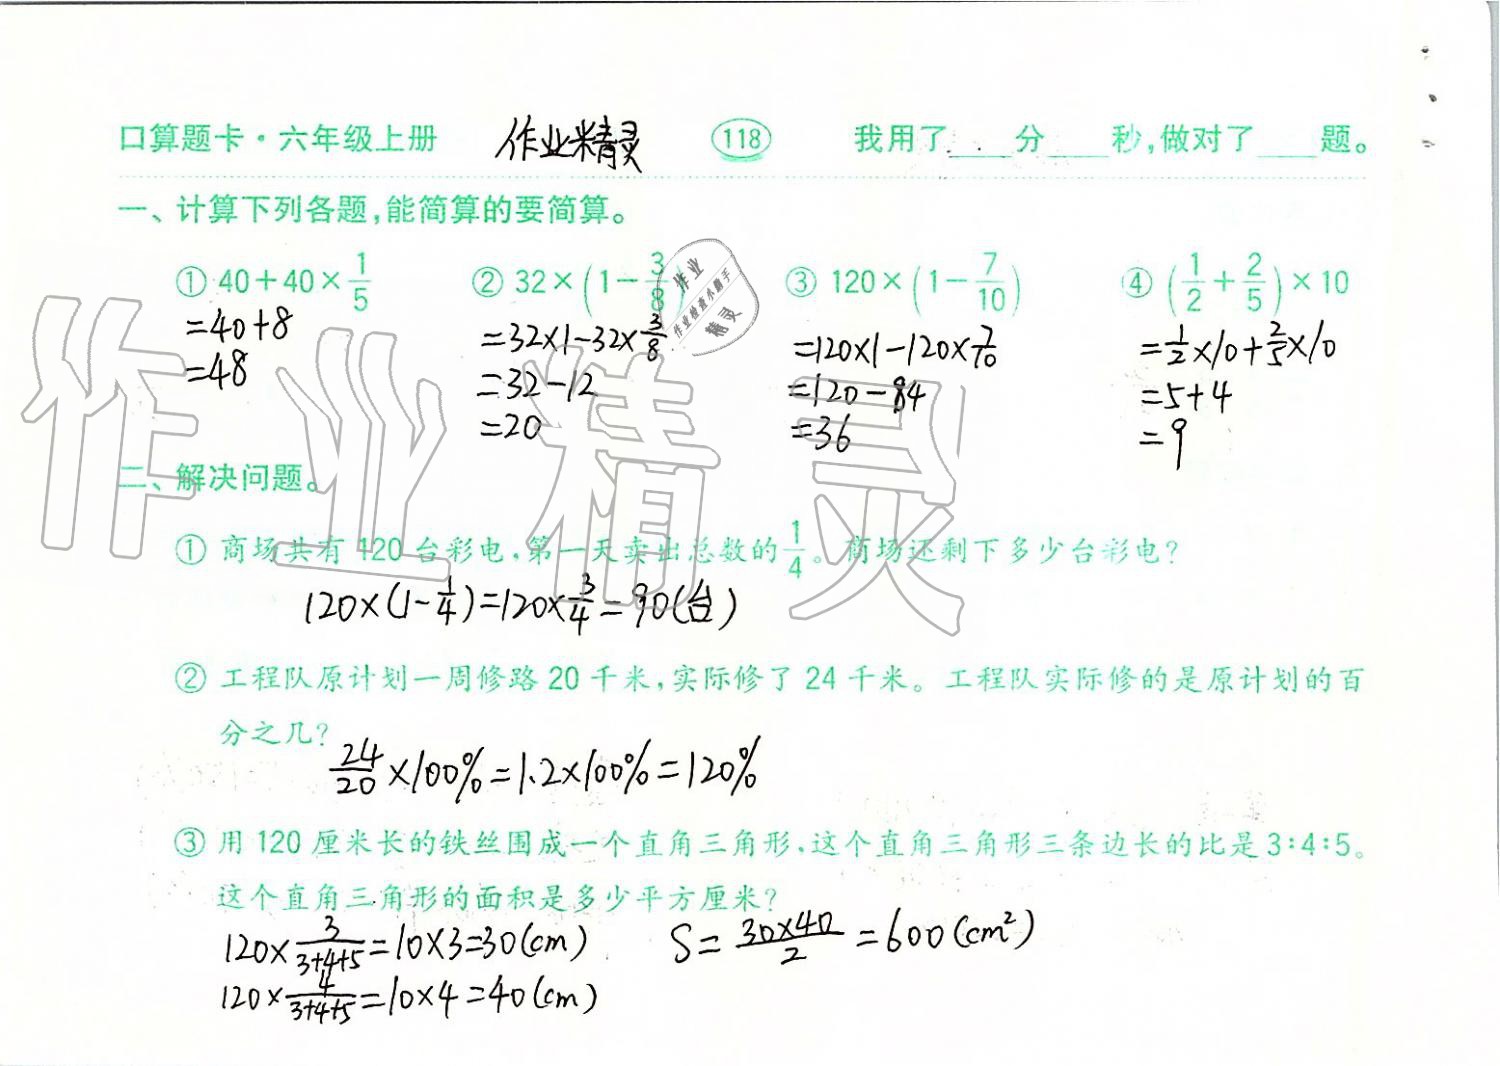 口算题卡·六年级上册 作业精灵 118 我用了____分____秒,做对了____题。
一、计算下列各题,能简算的要简算。
① 40+40×1/5 ② 32×(1-3/8) ③ 120×(1-7/10) ④ (1/2+2/5)×10
=40+8 =32×1-32×3/8 =120×1-120×7/10 =1/2×10+2/5×10
=48 =32-12 =120-84 =5+4
=20 =36 =9
二、解决问题。
① 商场共有120台彩电,第一天卖出总数的1/4。商场还剩下多少台彩电?
120×(1-1/4)=120×3/4=90(台)
② 工程队原计划一周修路20千米,实际修了24千米。工程队实际修的是原计划的百
分之几?
24/20×100%=1.2×100%=120%
③ 用120厘米长的铁丝围成一个直角三角形,这个直角三角形三条边长的比是3:4:5。
这个直角三角形的面积是多少平方厘米?
120×3/(3+4+5)=10×3=30(cm) S=30×40/2=600(cm²)
120×4/(3+4+5)=10×4=40(cm)
作业精灵
作业
作业检查小助手
精灵